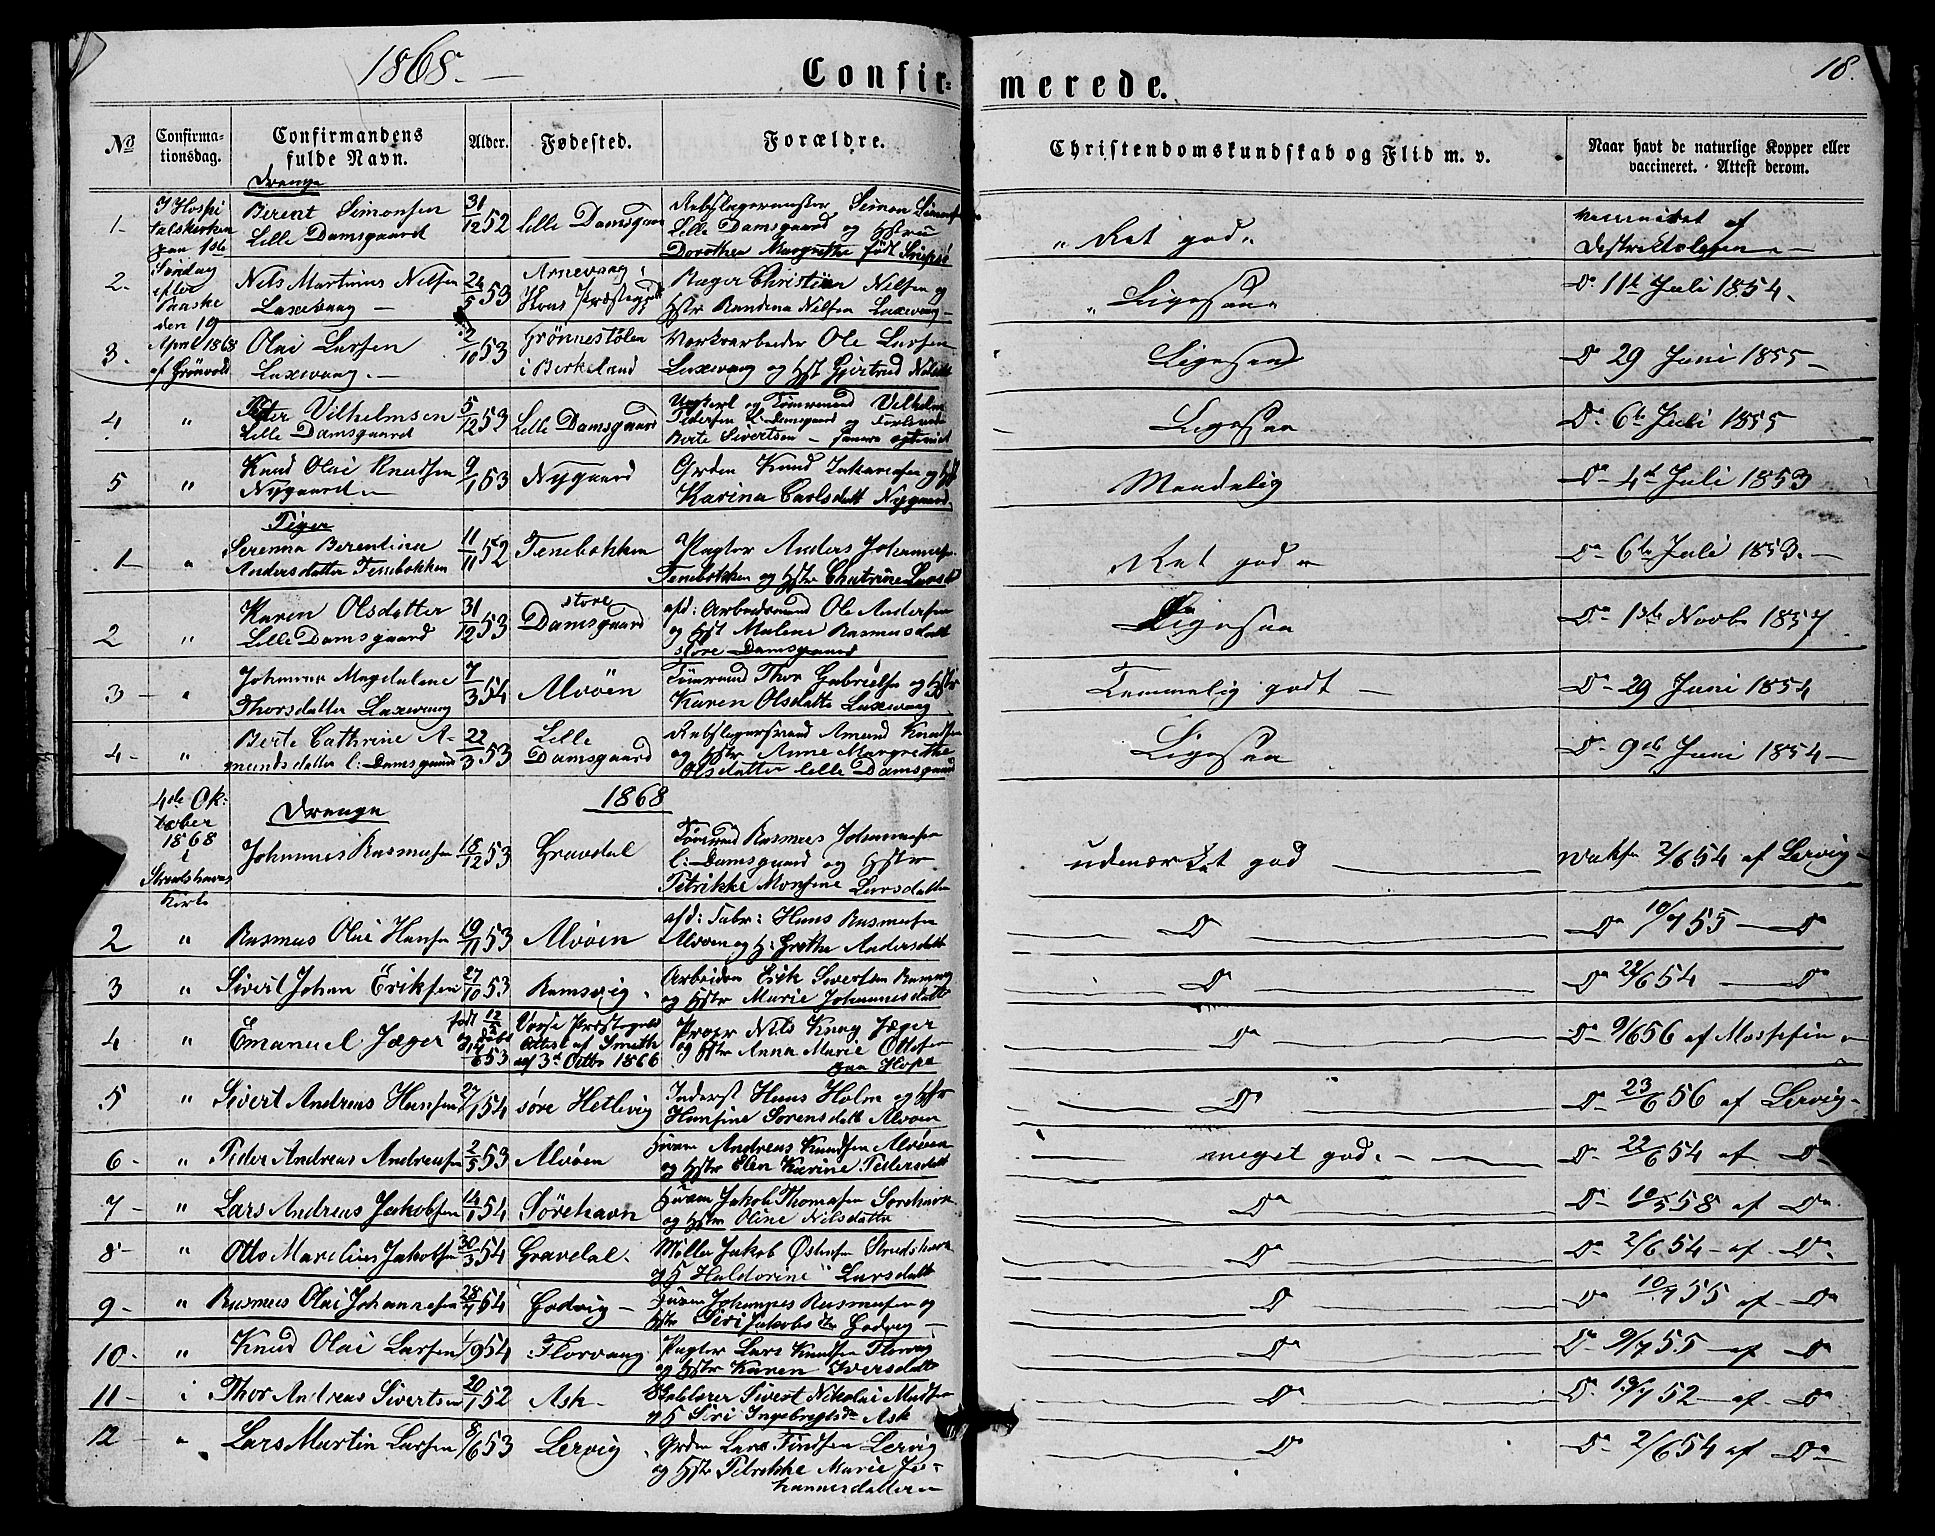 1868. —
Confir=
merede.
18.
No
Confirma=
tionsdag.
Confirmandens
fulde Navn.
Alder.
Fødested.
Forældre.
Christendomskundskab og Flid m. v.
Naar havt de naturlige Kopper eller
vaccineret. Attest derom.
Drenge
1- I Hospi Berent Simonsen 31/12 52 Lille Damsgaard Simon
talskirken Lille Damsgaard Lille Damsgaard og
paa 1ste Dorothea Margrethe født
" Ret god. af
2. Søndag Nils Martinus Nilsen 53 Christian Nilsen og
efter Laxevaag —
Paaske
Hstr Randina Nilsen Laxevaag
" Ligesaa Do 11te Juli 1854.
den 19
3. April 1868 Olai Larsen 2/10 53 Ole Larsen
af Grönvold Laxevaag. — i Birkeland Laxevaag og Hst Gjertrud
Ligesaa Do 29 Juni 1855 —
4 " Vilhelmsen 5/12 53 Lille Damsgaard og Tömrmand Vilhelm
Lille Damsgaard Pedersen L: Damsgaard og
Berte Sivertsen —
Ligesaa Do 6te Juli 1855
5 " Knud Olai Knudsen 53 Nygaard Knud
Nygaard Karina Carlsdatt Nygaard
Maadelig Do 4de Juli 1853
Piger
1- " Serenna Berentina 11/11 52 Tenebekken Pagter Anders Johannesen
Andersdatter Tenebekken Tenebekken og Hstr Chatrine
Ret god Do 6te Juli 1853. —
2 " Karen Olsdatter 31/12 53 store Damsgaard afd: Arbeidsmand Ole Andersen
Lille Damsgaard og Hst Malene Rasmusdatt
store Damsgaard
Ligesaa Do 1ste Novb. 1857
3 — " Johanne Magdalene 7/3 54 Alvöen Tömrmand Thor Gabrielsen og Hstr
Thorsdatter Laxevaag Karen Olsdatte Laxevaag
Temmelig godt — Do 29 Juni 1854
4- " Berte Cathrine A- 22/3 53 Lille Amund Knudsen
mundsdatter l: Damsgaard Damsgaard og Hstr Anne Margrethe
Olsdatter lille Damsgaard
Ligesaa Do 9de Juni 1854 —
4de Ok:
tober
1868
i
Kirke
Drenge
1868
Johannes Rasmusen 18/12 53 Gravdal Tömrmand Rasmus Johannesen
l: Damsgaard og Hstr
Petrikke Monsine Larsdatter
udmærket god 2/6 54 af Lervig
2 " Rasmus Olai Hansen 19/11 53 Alvöen afd: Fabr: Hans Rasmusen
Alvöen og H: Grethe Andersdatt
Do Do 10/7 55 — Do
3 " Sivert Johan Eriksen 27/10 53 Ramsvig. Arbeider Erik Sivertsen Ramsvig
og Hstr Marie Johannesdatt
Do Do 22/6 54 — Do
4 " Emanuel Jæger født 12/2 og døbt 53 Præstegjeld Nils Krag Jæger
Attest af Smith og Hstr Anna Marie Ottesen
af 3de Octbr 1866
Do Do 9/6 56 af
5 " Sivert Andreas Hansen 27/1 54 søre Hetlevig Inderst Hans Holm og Hstr
Hansine Sørensdatt Alvöen
Do Do 23/6 56 af Lervig
6 - " Peder Andreas Andreasen 2/5 53 Alvöen Andreas Knudsen Alvöen
og Hstr Elen Karine Pedersdatt
meget god. — Do 22/6 54 af Do
7 - " Lars Andreas Jakobsen 14/1 54 Sörehavn Jakob Thomasen Sörehavn
og Hstr Oline Nilsdatter
Do Do 10/5 58 af Do
8 - " Otto Marelius Jakobsen 30/3 54 Gravdal. Møller Jakob
og H Haldorine Larsdatt
Do Do 2/6 54 — af Do
9 - " Rasmus Olai Johannesen 28/1 54 Godvig — Johannes Rasmusen og
Hstr Siri Jakobsdtr Godvig —
D Do 10/7 55 af Do
10 - " Knud Olai Larsen 1/9 54 Florvaag Pagter Lars Knudsen Florvaag
og Hstr Karen Iversdatte
Do Do 9/7 55 — af Do
11 - Thor Andreas Sivertsen 20/1 52 Ask — Sivert Nikolai Madsen
og H Siri Ingebregtsdr Ask
Do Do 13/7 52 — af Do
12 - " Lars Martin Larsen 8/6 53 Lervig Lars Lervig
og Hstr Petrikke Marie Jo=
hannesdatter
Do Do 2/6 54 af Do